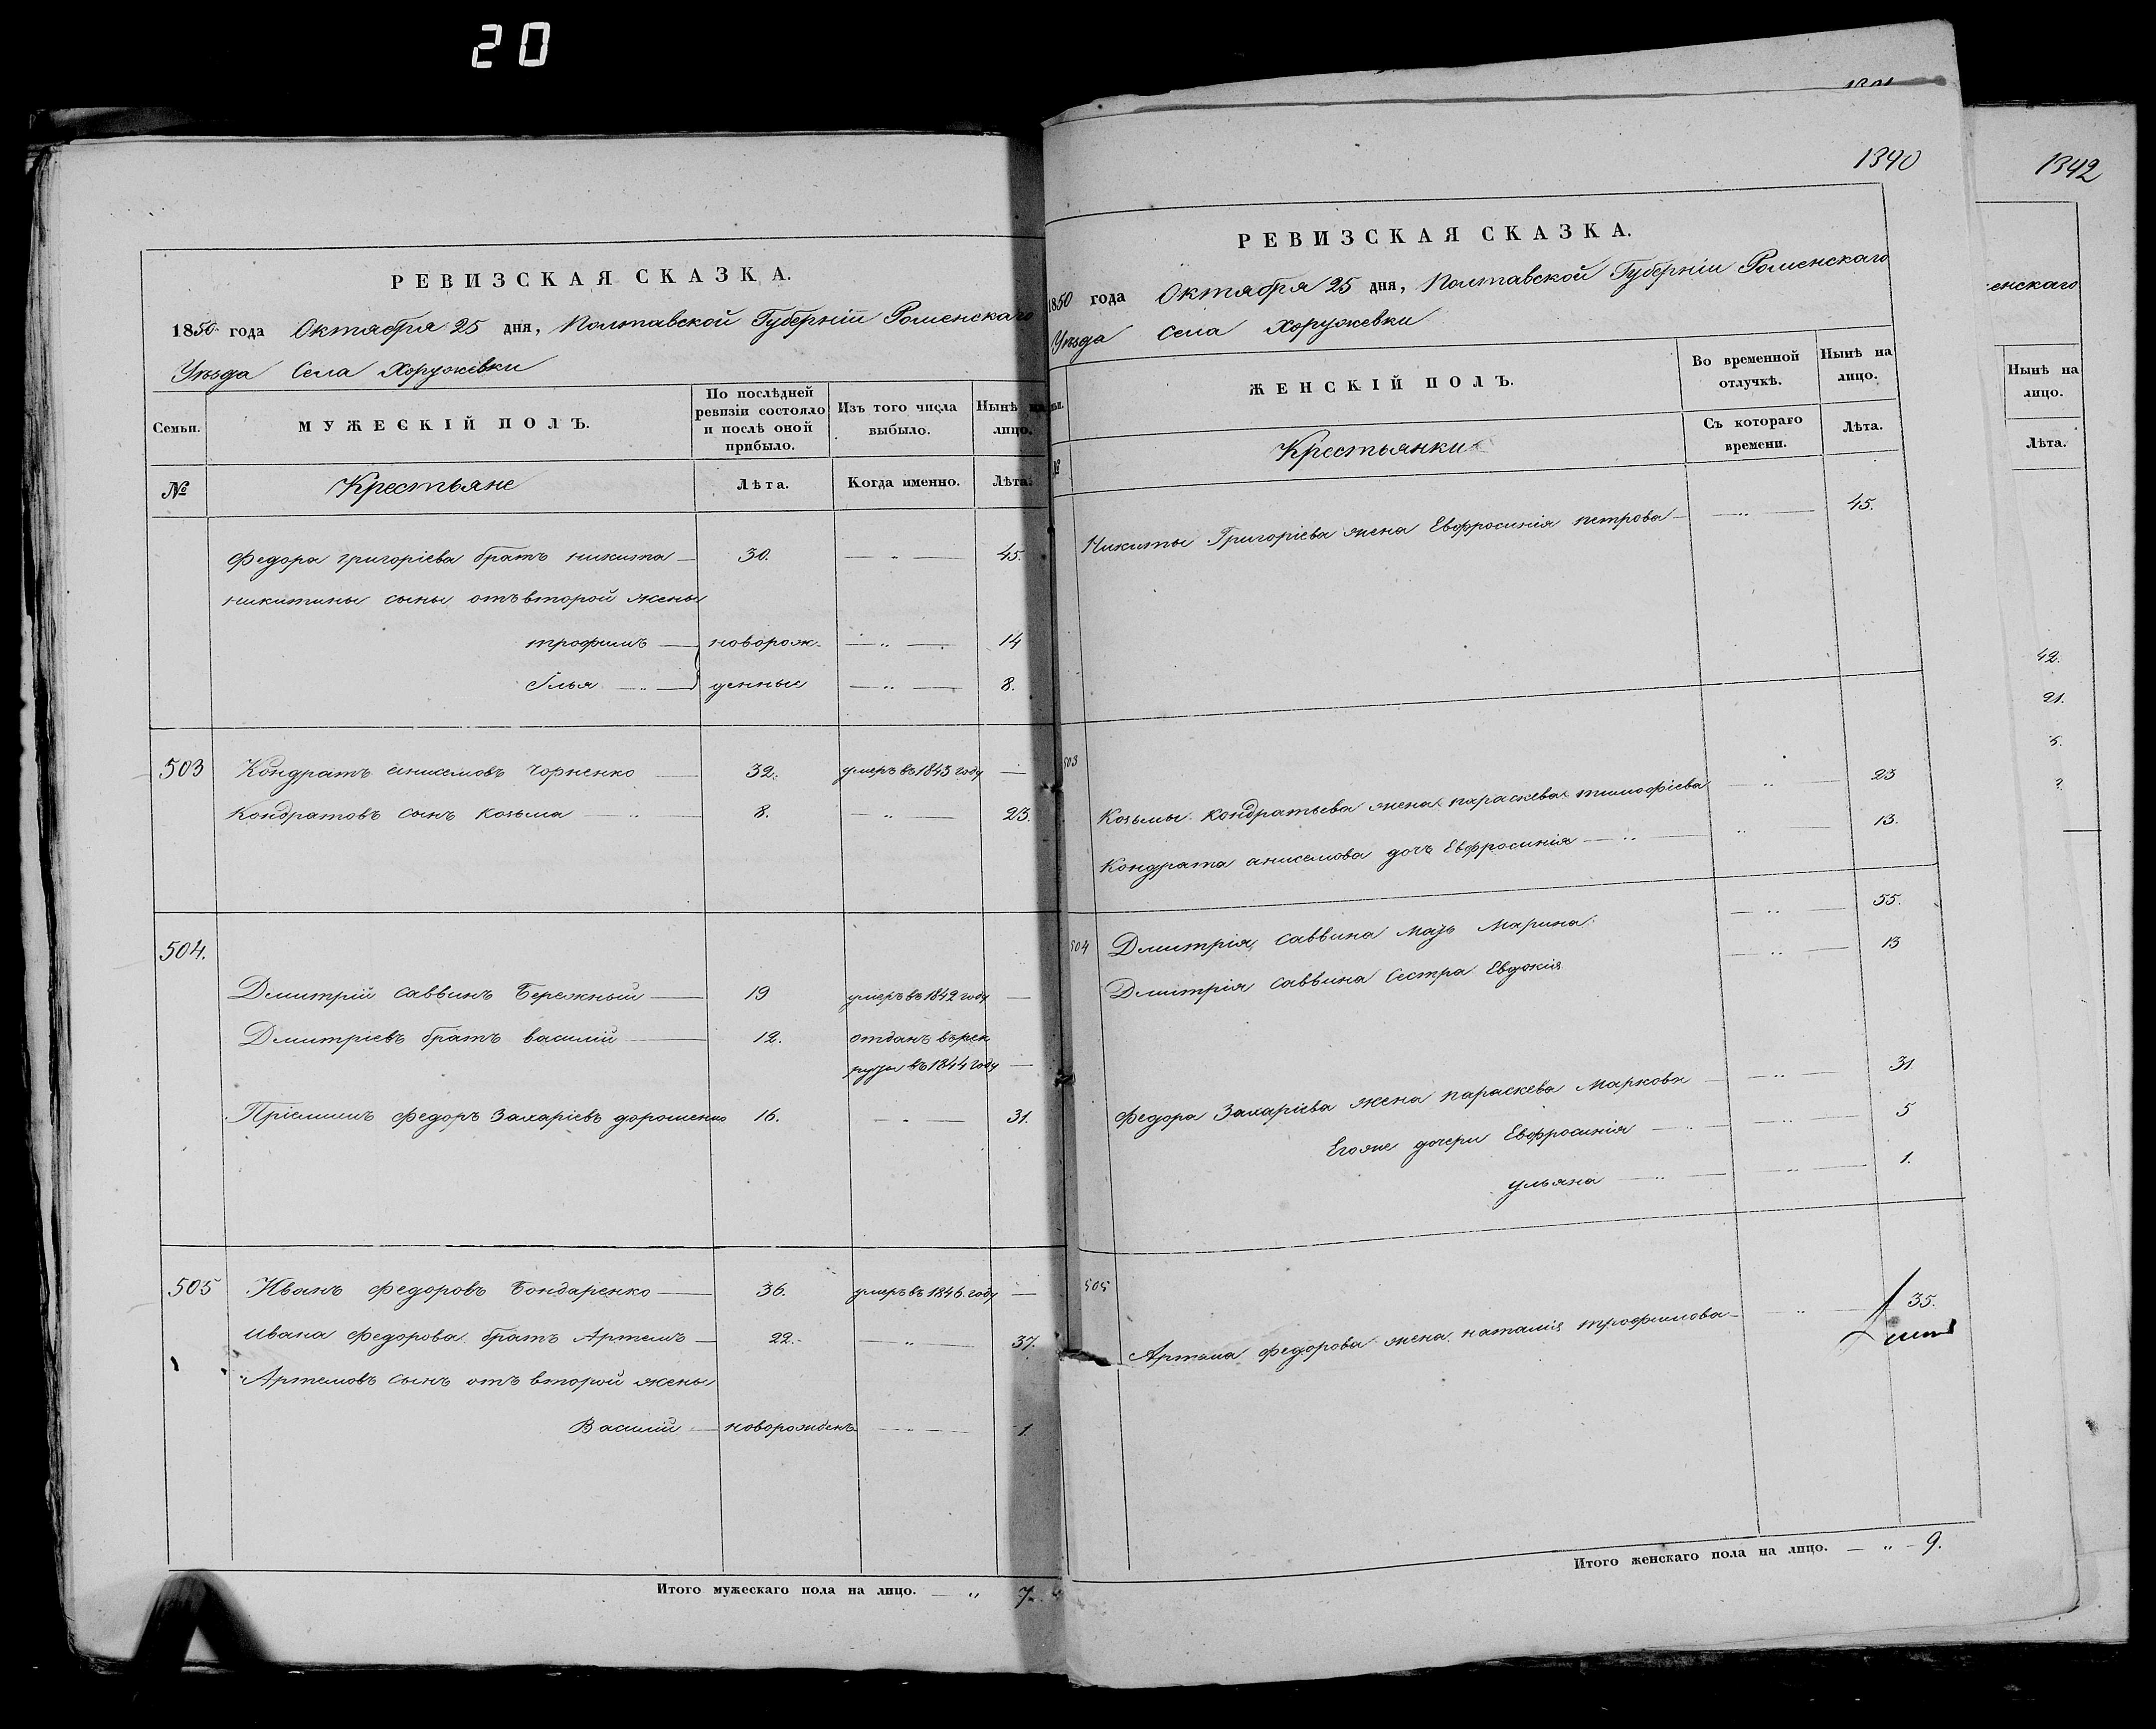 20
РЕВИЗСКАЯ СКАЗКА.
1850 года Октября 25 дня, Полтавской Губерніи Роменскаго
Уѣзда Села Хоружевки
Семьи.
МУЖЕСКІЙ ПОЛЪ.
По послѣдней ревизіи состояло и послѣ оной прибыло.
Изъ того числа выбыло.
Нынѣ на лицо.
№
Крестьяне
Лѣта.
Когда именно.
Лѣта.
Федора григоріева братъ никита — 30. — " — 45.
никитины сыны отъ второй жены
трофимъ — новорож- — " — 14
Илья — " — денные — " — 8.
503 Кондратъ анисимовъ чорненко — 32. умеръ въ 1843 году —
Кондратовъ сынъ козьма — " — 8. — " — 23.
504.
Дмитрій саввинъ Бережный — 19 умеръ въ 1842 году —
Дмитріевъ братъ василій — 12. отданъ въ рек
руты въ 1844 году —
Пріемышъ Федоръ Захаріевъ дорошенко 16. — " — 31.
505 Иванъ Федоровъ Бондаренко — 36. умеръ въ 1846. году —
Ивана Федорова братъ Артемъ — 22. — " — 37.
Артемовъ сынъ отъ второй жены
Василій — новорожденъ — " — 1.
Итого мужескаго пола на лицо. — " 7.
1340
РЕВИЗСКАЯ СКАЗКА.
1850 года Октября 25 дня, Полтавской Губерніи Роменскаго
Уѣзда Села Хоружевки
ЖЕНСКІЙ ПОЛЪ.
Во временной отлучкѣ.
Нынѣ на лицо.
№
Крестьянки
Съ котораго времени.
Лѣта.
Никиты Григоріева жена Евфросинія петрова — — " — 45.
503
Козьмы кондратьева жена параскева тимофіева — " — 23
Кондрата анисимова дочь Евфросинія — " — " — 13.
504 Дмитрія саввина мать Марина — " — 55.
Дмитрія саввина сестра Евдокія — " — 13
Федора Захаріева жена параскева Маркова — — " — 31
Егоже дочери Евфросинія — " — — " — 5
ульяна — " — — " — 1.
505
Артема Федорова жена наталія трофимова — " — 35.
Итого женскаго пола на лицо. — " — 9.
1342
енскаго
Нынѣ на лицо.
Лѣта.
42.
21.